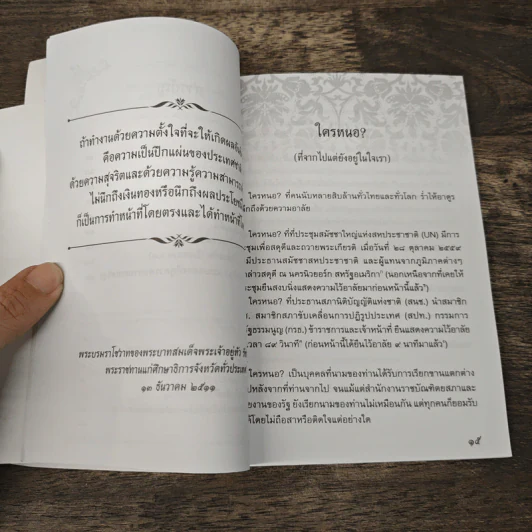 ถ้าทำงานด้วยความตั้งใจที่จะให้เกิดผล
คือความเป็นปึกแผ่นของประเทศ
ด้วยความสุจริตและด้วยความรู้ความสามารถ
ไม่นึกถึงเงินทองหรือนึกถึงผลประโยชน์
ก็เป็นการทำหน้าที่โดยตรงและได้ทำหน้าที่
พระบรมราโชวาทของพระบาทสมเด็จพระเจ้าอยู่หัว
พระราชทานแก่ศึกษาธิการจังหวัดทั่วประเทศ
๑๓ ธันวาคม ๒๕๑๑
ใครหนอ?
(ที่จากไปแต่ยังอยู่ในใจเรา)
ใครหนอ? ที่คนนับหลายสิบล้านทั่วไทยและทั่วโลก ร่ำไห้อาดูร
ถึงด้วยความอาลัย
ใครหนอ? ที่ที่ประชุมสมัชชาใหญ่แห่งสหประชาชาติ (UN) มีการ
ชุมเพื่อสดุดีและถวายพระเกียรติ เมื่อวันที่ ๒๘ ตุลาคม ๒๕๕๙
มีประธานสมัชชาสหประชาชาติ และผู้แทนจากภูมิภาคต่างๆ
ล่าวสดุดี ณ นครนิวยอร์ก สหรัฐอเมริกา" (นอกเหนือจากที่เคยให้
ะชุมยืนสงบนิ่งแสดงความไว้อาลัยมาก่อนหน้านี้แล้ว")
ใครหนอ? ที่ประธานสภานิติบัญญัติแห่งชาติ (สนช.) นำสมาชิก
สมาชิกสภาขับเคลื่อนการปฏิรูปประเทศ (สปท.) กรรมการ
รัฐธรรมนูญ (กรธ.) ข้าราชการและเจ้าหน้าที่ ยืนแสดงความไว้อาลัย
เวลา ๘๙ วินาที" (ก่อนหน้านี้ได้ยืนไว้อาลัย ๙ นาทีมาแล้ว")
ใครหนอ? เป็นบุคคลที่นามของท่านได้รับการเรียกขานแตกต่าง
ปหลังจากที่ท่านจากไป จนแม้แต่สำนักงานราชบัณฑิตยสภาและ
ยงานของรัฐ ยังเรียกนามของท่านไม่เหมือนกัน แต่ทุกคนก็ยอมรับ
ด้โดยไม่ถือสาหรือติดใจแต่อย่างใด
๑๕